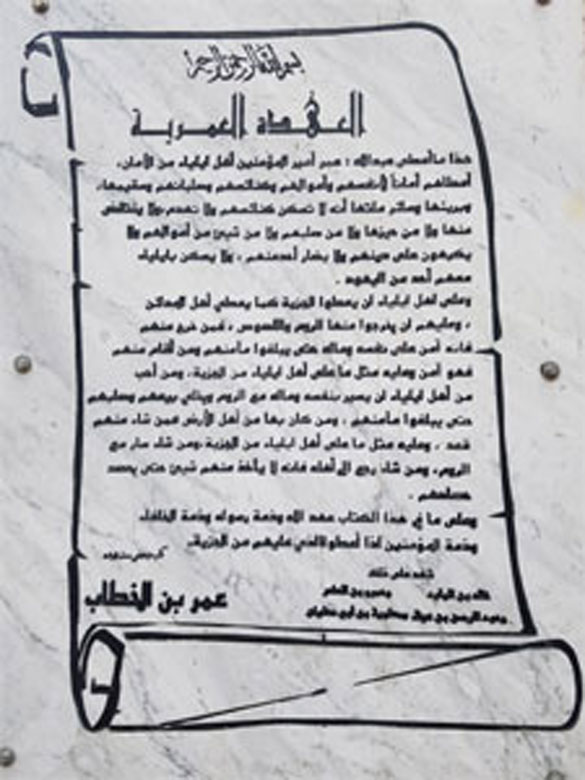 بسم الله الرحمن الرحيم
العهدة العمرية
هذا ما أعطى عبدالله : عمر أمير المؤمنين أهل ايلياء من الأمان،
أعطاهم أماناً لأنفسهم وأموالهم وكنائسهم وصلبانهم وسقيمها،
وبريئها وسائر ملتها أنه لا تسكن كنائسهم ولا تهدم ولا ينتقض
منها ولا من حيزها ولا من صلبهم ولا من شيئ من أموالهم ولا
يكرهون على دينهم ولا يضار أحد منهم ، ولا يسكن بايلياء
معهم أحد من اليهود .
وعلى أهل ايلياء أن يعطوا الجزية كما يعطي أهل المدائن
، وعليهم أن يخرجوا منها الروم واللصوص ، فمن خرج منهم
فانه آمن على نفسه وماله حتى يبلغوا مأمنهم ومن أقام منهم
فهو آمن وعليه مثل ما على أهل ايلياء من الجزية، ومن أحب
من أهل ايلياء أن يسير بنفسه وماله مع الروم ويخلي بيعهم وصلبهم
حتى يبلغوا مأمنهم ، ومن كان بها من أهل الأرض فمن شاء منهم
قعد ، وعليه مثل ما على أهل ايلياء من الجزية ،ومن شاء سار مع
الروم، ومن شاء رجع الى أهله فانه لا يأخذ منهم شيئ حتى يحصد
حصادهم .
وعلى ما في هذا الكتاب عهد الله وذمة رسوله وذمة الخلفاء
وذمة المؤمنين اذا أعطوا الذي عليهم من الجزية.
شهد على ذلك
خالد بن الوليد وعمرو بن العاص
وعبد الرحمن بن عوف ومعاوية بن أبي سفيان
عمر بن الخطاب